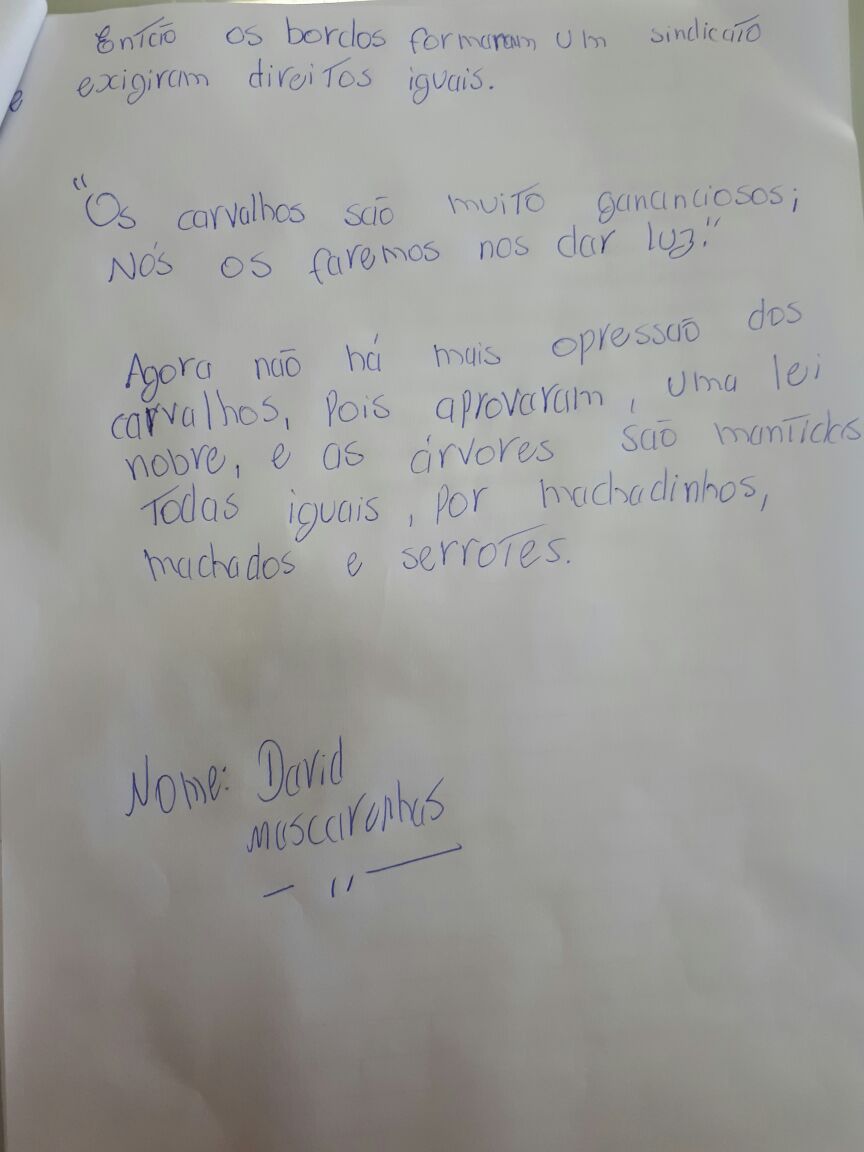 Então os bordos formaram um sindicato
exigiram direitos iguais.
"Os carvalhos são muito gananciosos;
Nós os faremos nos dar luz."
Agora não há mais opressão dos
carvalhos, pois aprovaram, uma lei
nobre, e as árvores são mantidas
Todas iguais, por machadinhos,
machados e serrotes.
Nome: David
mascarenhas